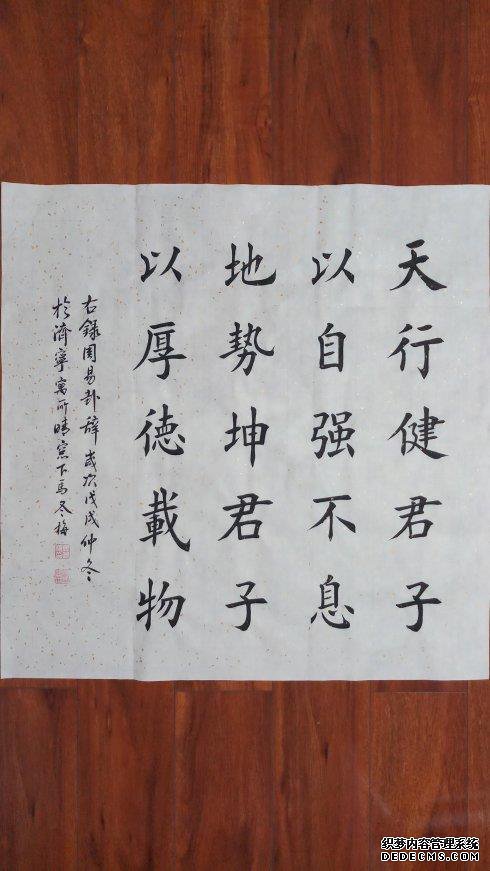 天行健君子
以自强不息
地势坤君子
以厚德載物
右録周易卦辞歲次戊戌仲冬
於濟寧寓所晴窓下馬冬梅
织梦内容管理系统
DEDECMS.COM